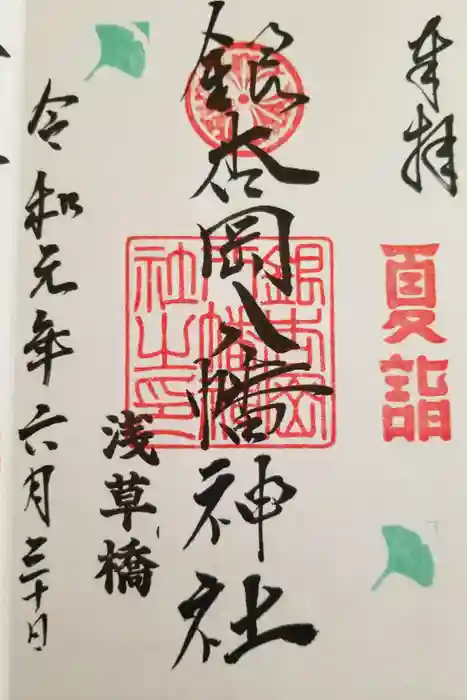 奉拝
夏詣
銀杏岡八幡神社
銀杏岡八幡神社之印
浅草橋
令和元年六月三十日